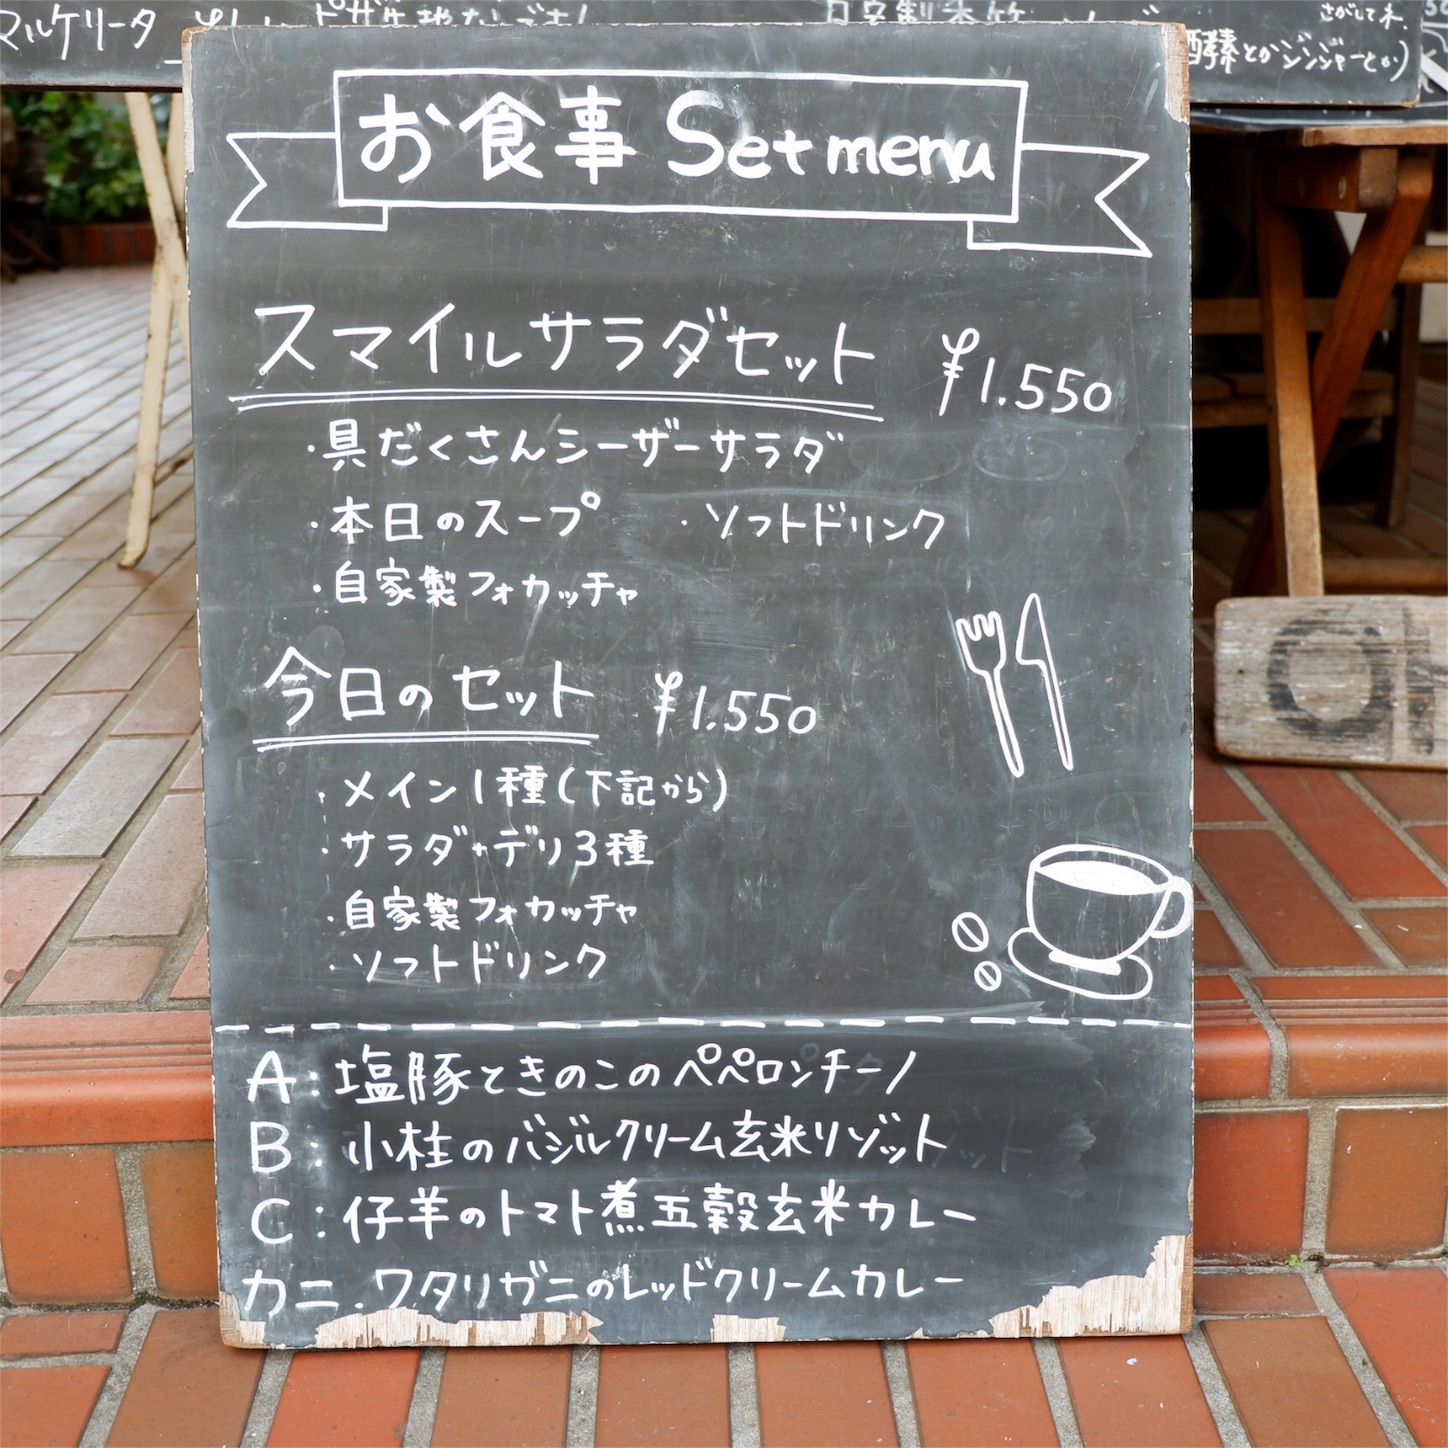 マルケリータ
さがしてネ.
酵素とかジンジャーとか)
お食事 Set menu
スマイルサラダセット ¥1.550
・具だくさんシーザーサラダ
・本日のスープ ・ソフトドリンク
・自家製フォカッチャ
今日のセット ¥1.550
・メイン1種(下記から)
・サラダ+デリ3種
・自家製フォカッチャ
・ソフトドリンク
A:塩豚ときのこのペペロンチーノ
B:小柱のバジルクリーム玄米リゾット
C:仔羊のトマト煮五穀玄米カレー
カニ.ワタリガニのレッドクリームカレー